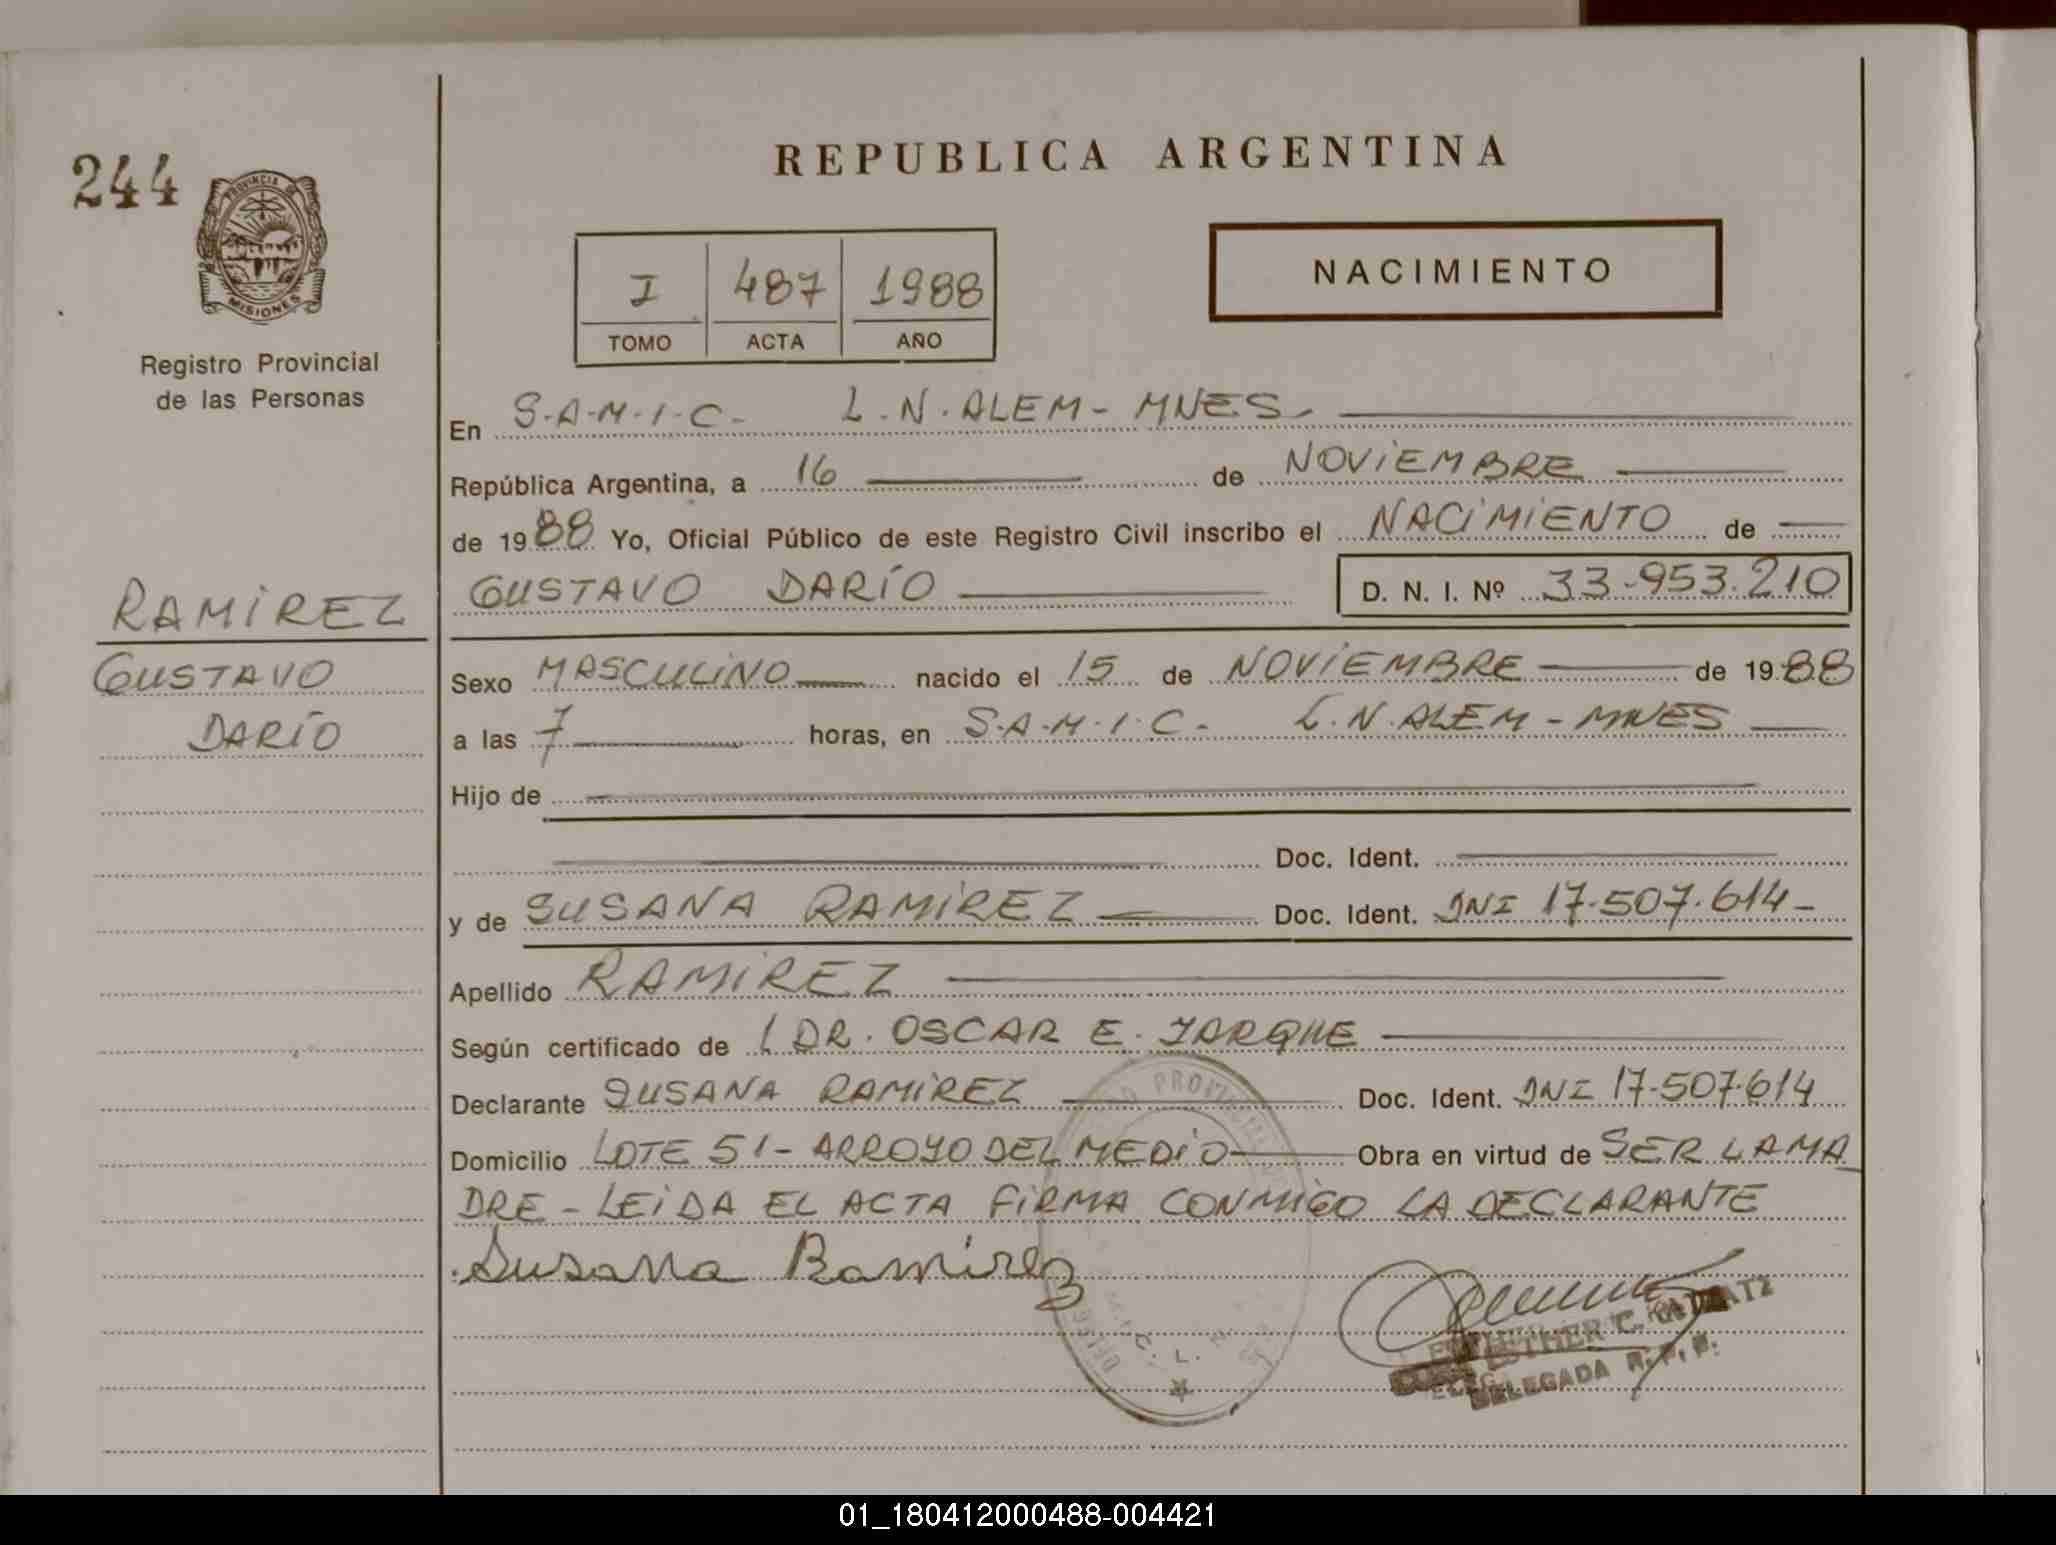 244
PROVINCIA DE
MISIONES
Registro Provincial
de las Personas
RAMIREZ
GUSTAVO
DARÍO
REPUBLICA ARGENTINA
I 487 1988
TOMO ACTA AÑO
NACIMIENTO
En S.A.M.I.C. - L.N. ALEM - MNES.
República Argentina, a 16 de NOVIEMBRE
de 1988 Yo, Oficial Público de este Registro Civil inscribo el NACIMIENTO de
GUSTAVO DARÍO D. N. I. Nº 33.953.210
Sexo MASCULINO nacido el 15 de NOVIEMBRE de 1988
a las 7 horas, en S.A.M.I.C. - L.N. ALEM - MNES
Hijo de
Doc. Ident.
y de SUSANA RAMIREZ Doc. Ident. DNI 17.507.614-
Apellido RAMIREZ
Según certificado de DR. OSCAR E. JARQUE
Declarante SUSANA RAMIREZ Doc. Ident. DNI 17.507.614
Domicilio LOTE 51 - ARROYO DEL MEDIO Obra en virtud de SER LA MA
DRE - LEIDA EL ACTA FIRMA CONMIGO LA DECLARANTE
Susana Ramirez
ESTHER C.
DELEGADA R. P. P.
01_180412000488-004421